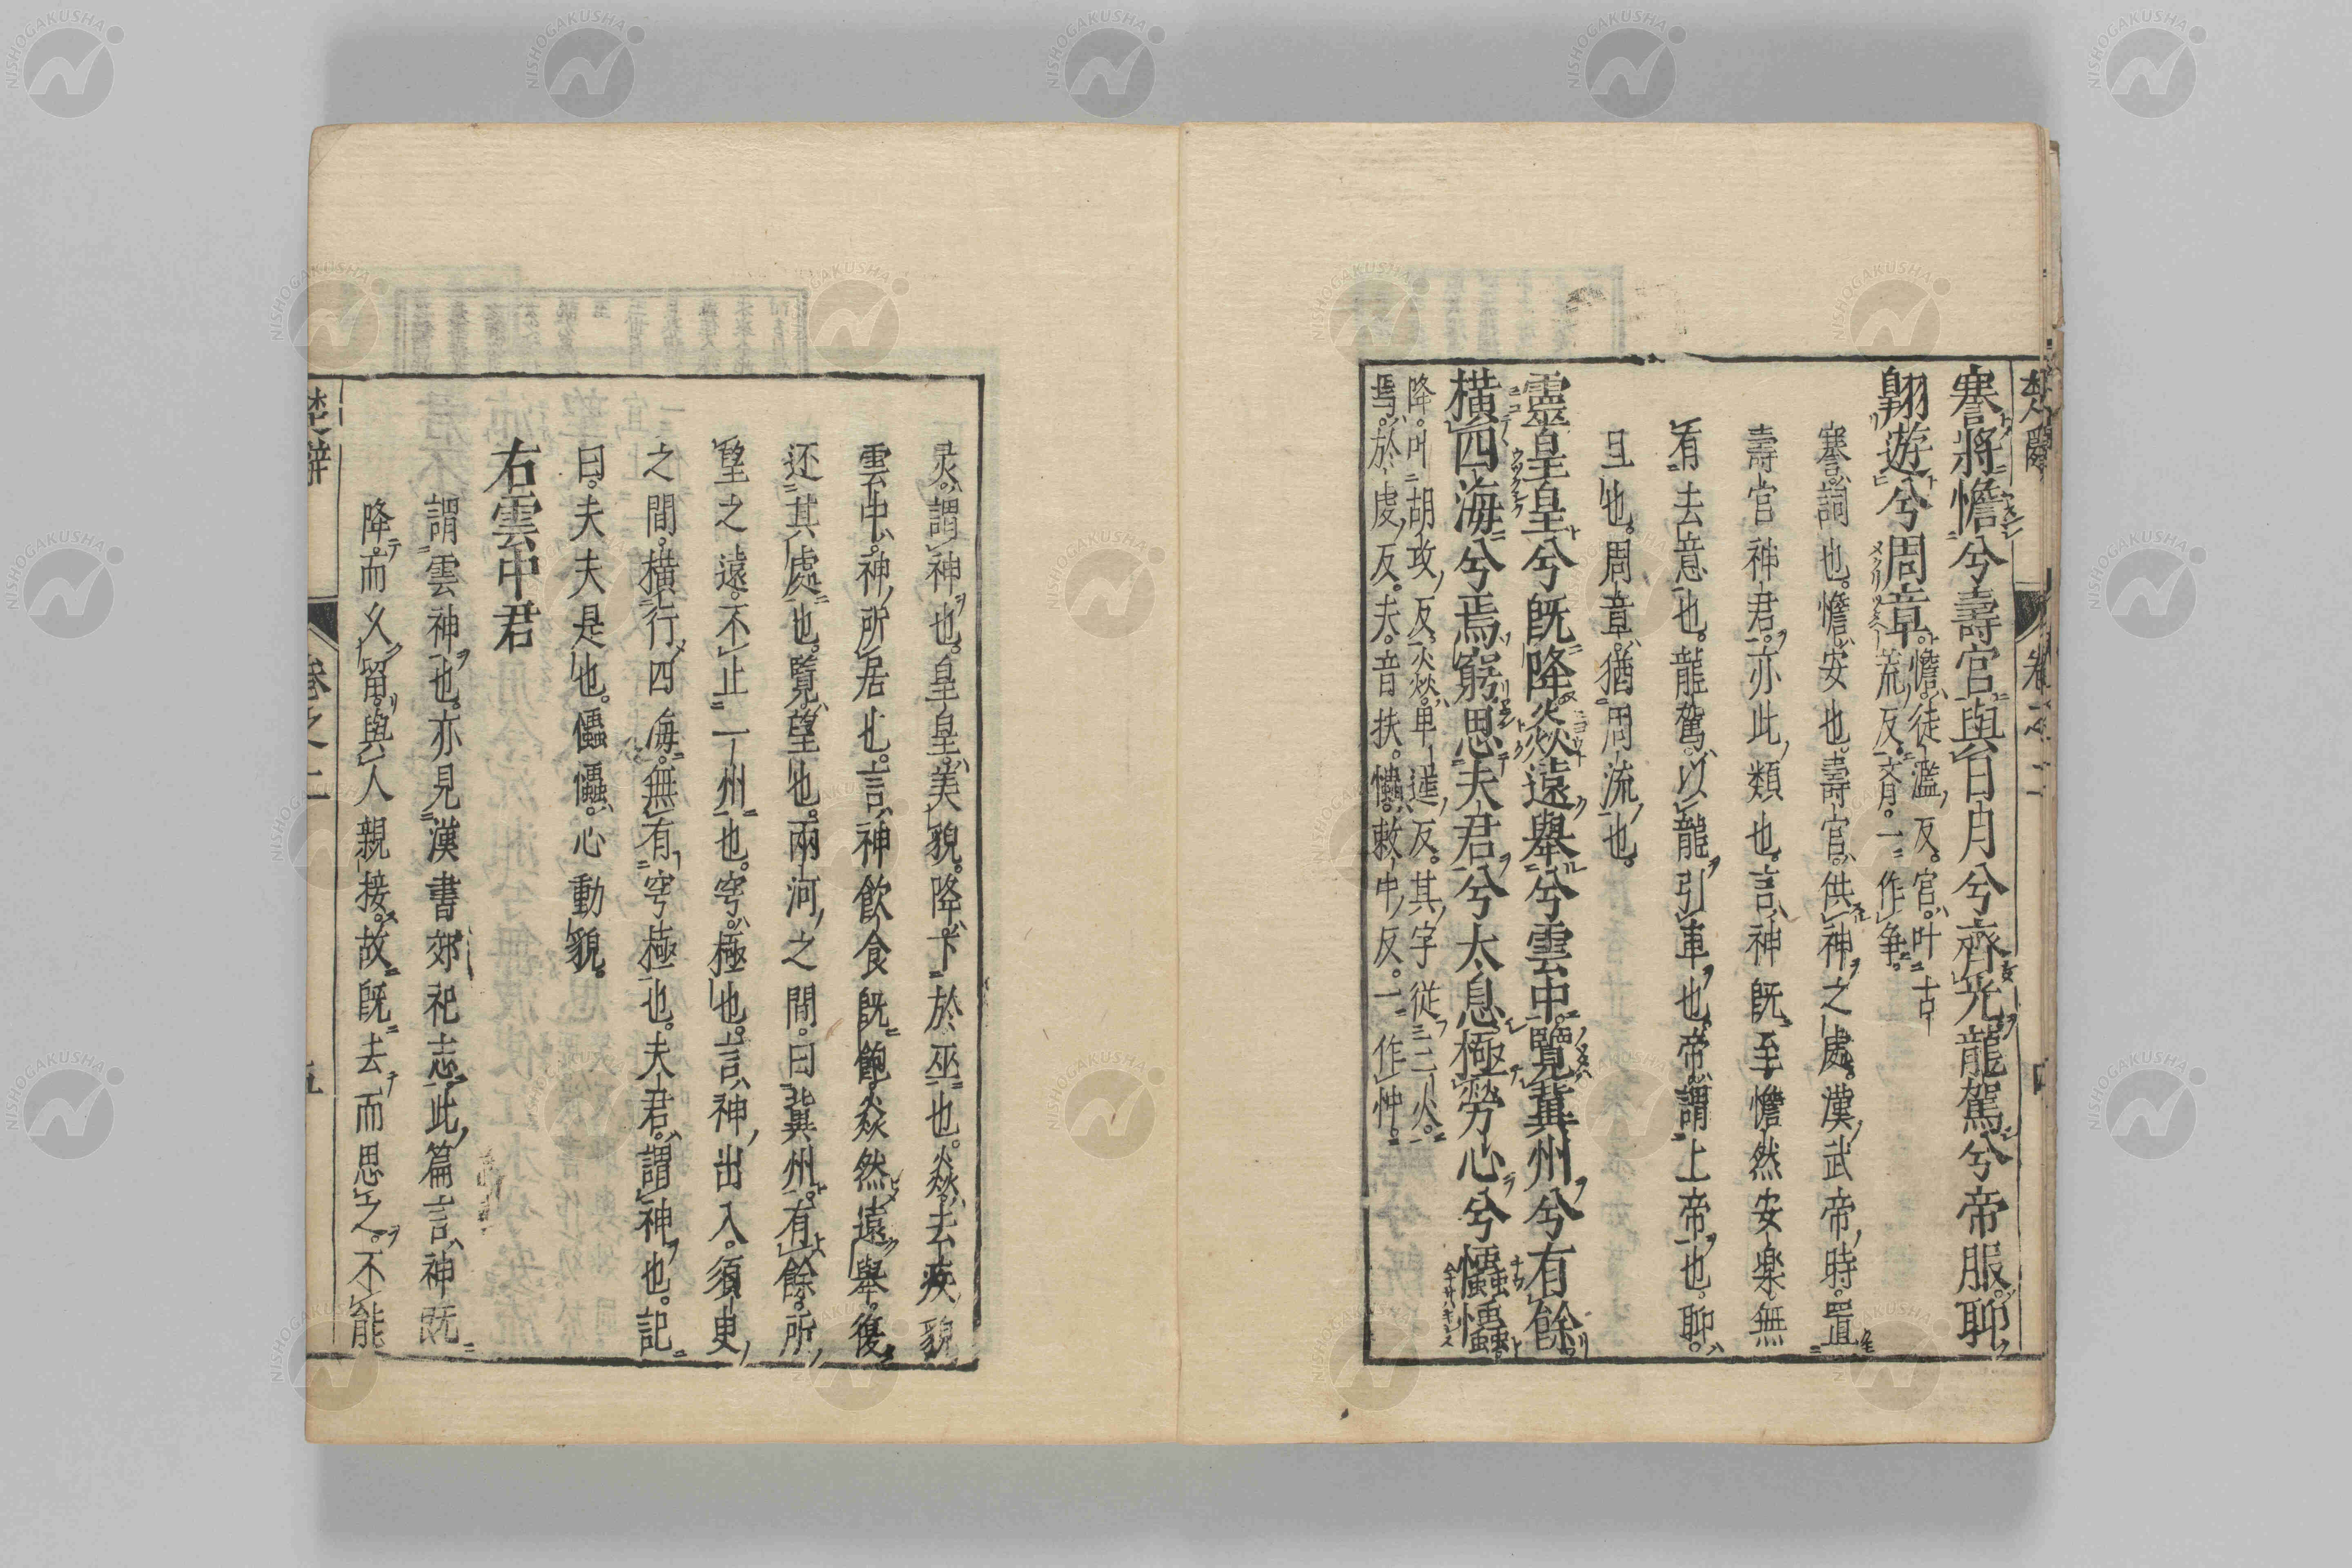 謇將憺兮壽宮與日月兮齊光龍駕兮帝服聊
翶遊兮周章
憺徒濫反宮叶古
荒反齊一作争
謇詞也憺安也壽宮供神之處漢武帝時置
壽宮神君亦此類也言神既至憺然安樂無
有去意也龍駕以龍引車也帝謂上帝也聊
且也周章猶周流也
靈皇皇兮既降焱遠舉兮雲中覽冀州兮有餘
横四海兮焉窮思夫君兮太息極勞心兮忡忡
降叶胡攻反焱卑遥反其字從三火
焉於虔反夫音扶㤝敕中反一作忡
灵謂神也皇皇美貌降下於巫也焱去疾貌
雲中神所居也言神飲食既飽焱然遠舉復
还其處也覽望也兩河之間曰冀州有餘所
望之遠不止一州也穹極也言神出入須臾
之間横行四海無有穹極也夫君謂神也記
曰夫夫是也㤝㤝心動貌
右雲中君
謂雲神也亦見漢書郊祀志此篇言神既
降而久留與人親接故既去而思之不能
楚辭 巻之二 五
NISHOGAKUSHA